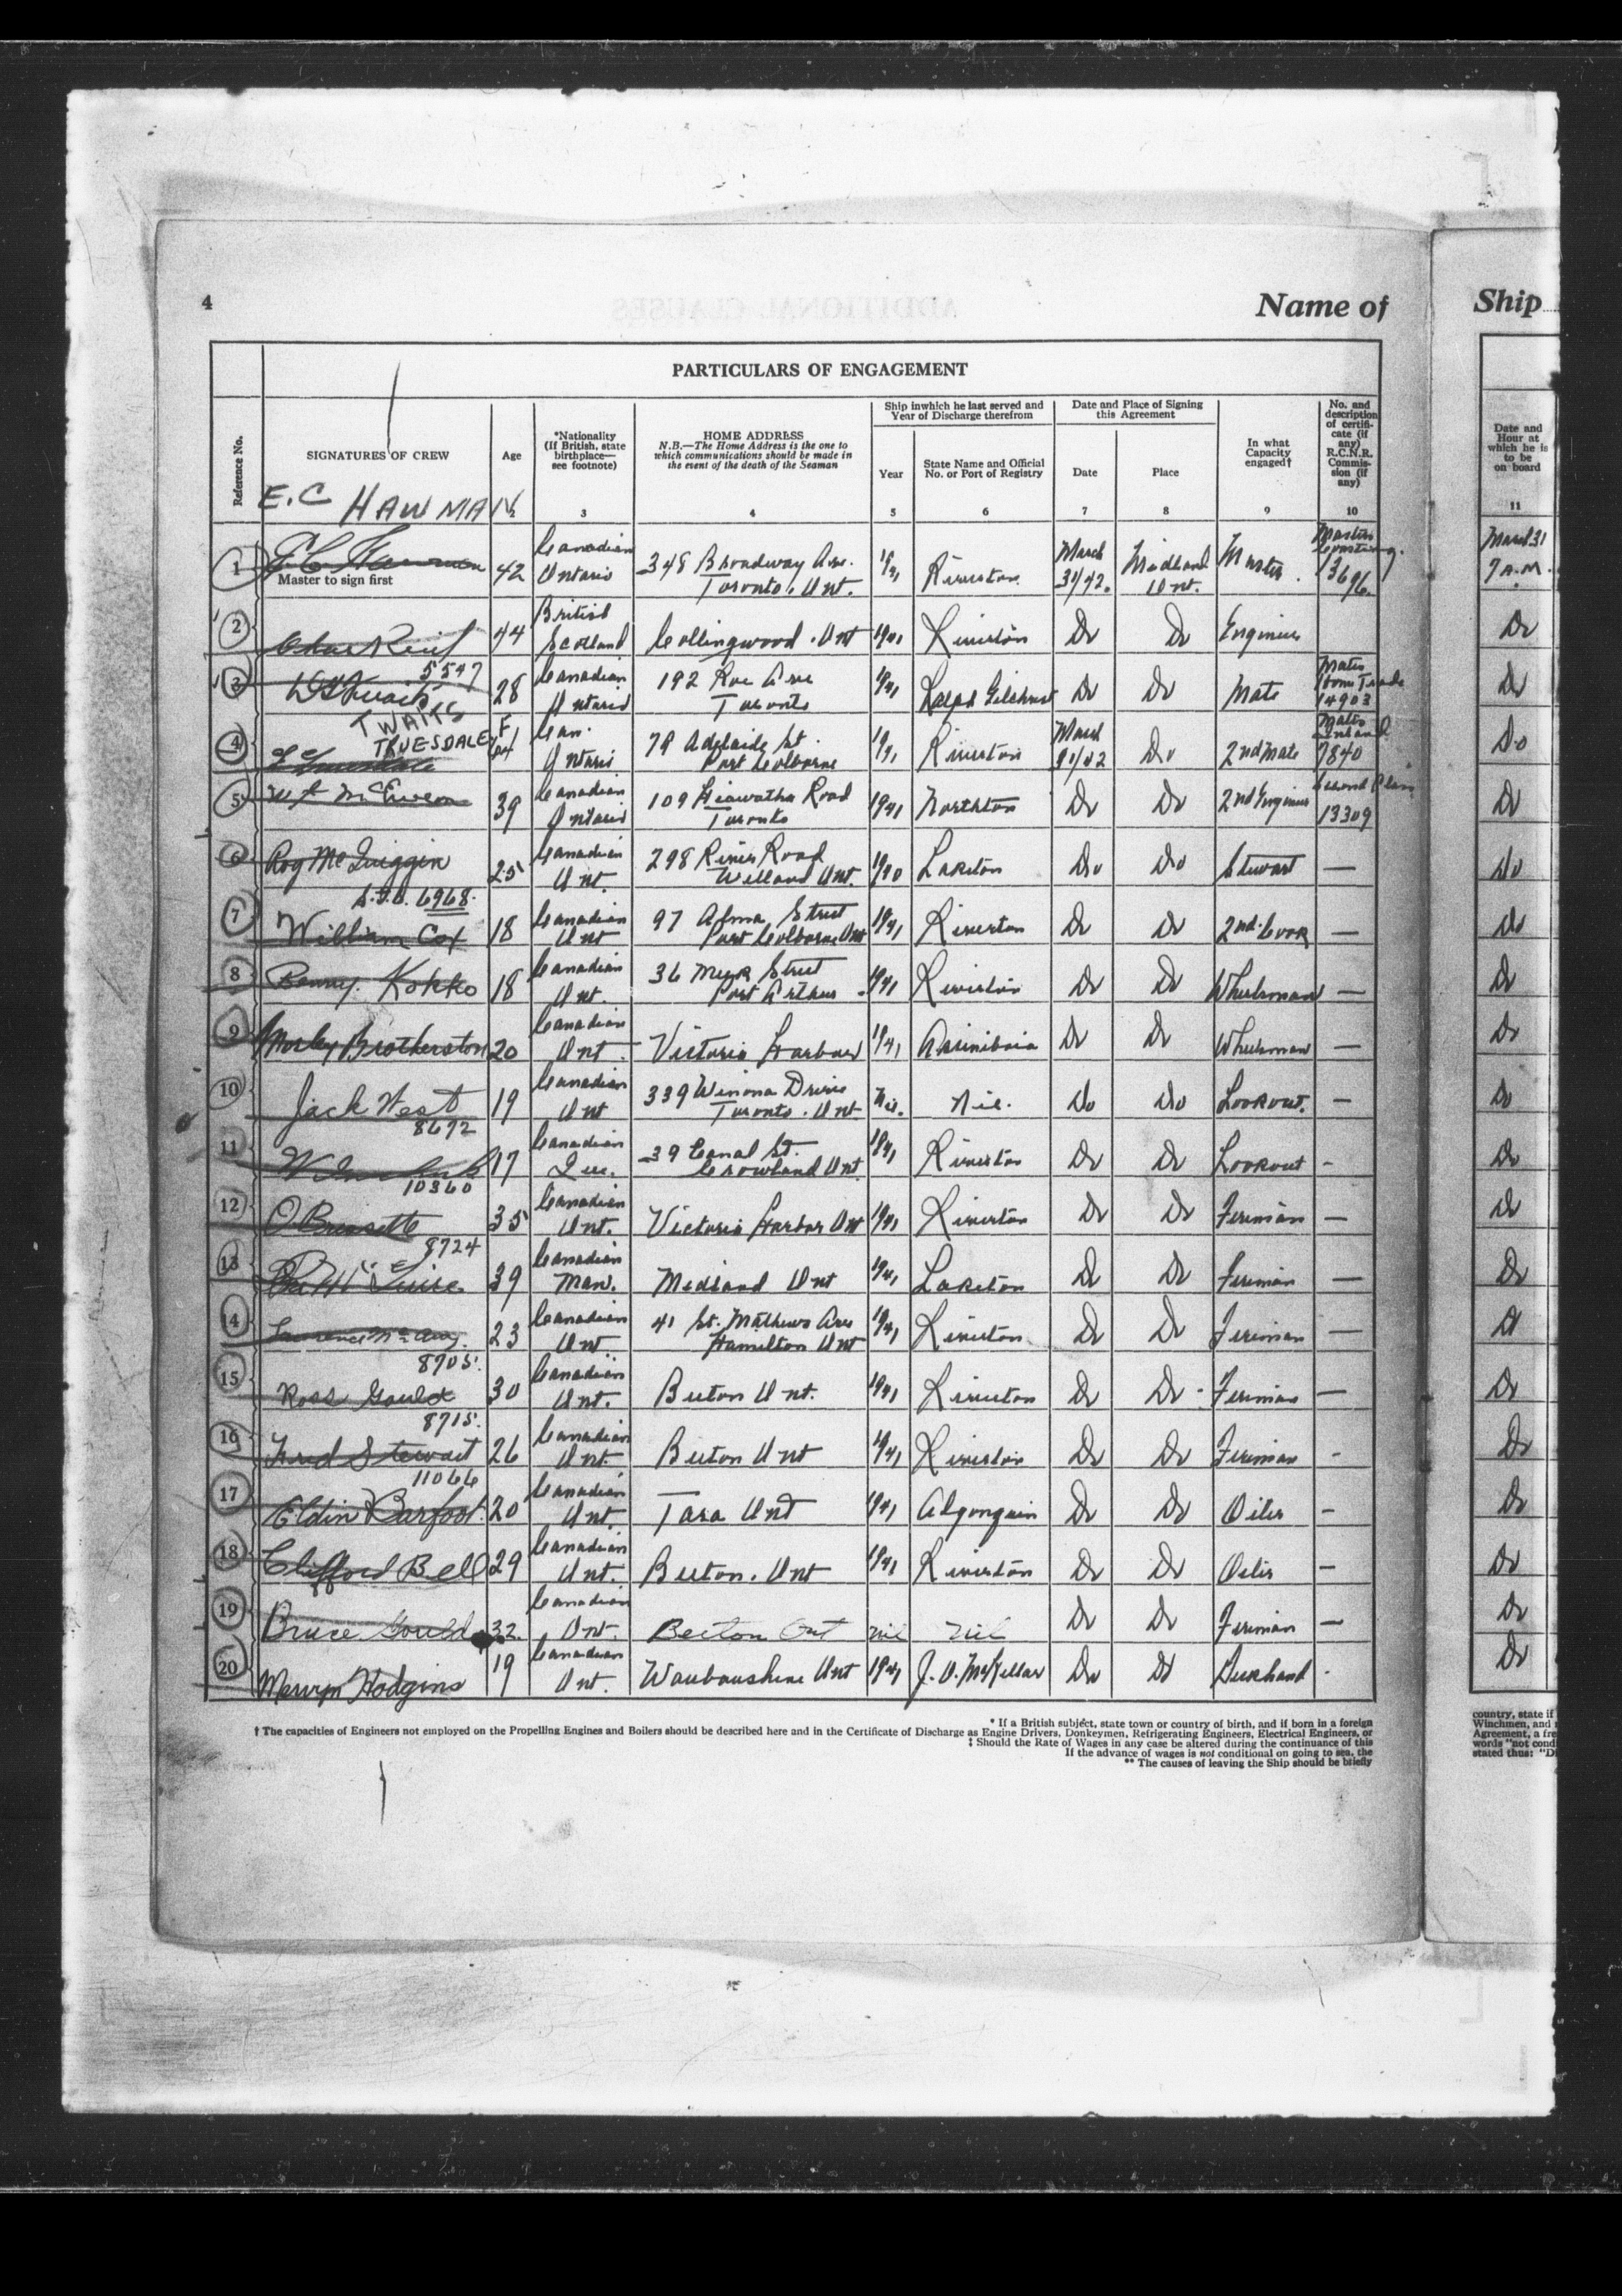 4
Name of
Ship
PARTICULARS OF ENGAGEMENT
Reference No.
SIGNATURES OF CREW
Age
*Nationality
(If British, state
birthplace—
see footnote)
HOME ADDRESS
N.B.—The Home Address is the one to
which communications should be made in
the event of the death of the Seaman
Ship in which he last served and
Year of Discharge therefrom
Year
State Name and Official
No. or Port of Registry
Date and Place of Signing
this Agreement
Date
Place
In what
Capacity
engaged†
No. and
description
of certifi-
cate (if
any)
R.C.N.R.
Commis-
sion (if
any)
Date and
Hour at
which he is
to be
on board
E.C HAWMAN
2 3 4 5 6 7 8 9 10 11
1 E C Hawman 42 Canadian Ontario 348 Broadway Ave. Toronto. Ont. Riverton March 31/42. Midland Ont. Master Masters 13696 March 31 7 A.M.
Master to sign first
2 44 British Scotland Collingwood . Ont 1941 Riverton Do Do Engineer Do
5547
3 28 Canadian Ontario 192 Roe Ave Toronto 1941 Ralph Gilchrist Do Do Mate Mates Home Trade 14903 Do
TWAITS
TRUESDALE
4 Can. Ontario 79 Adelaide St. Port Colborne 1941 Riverton March 2nd Mate Mates Inland 7840 Do
5 McEwen 39 Canadian Ontario 109 Hiawatha Road Toronto 1941 Northton Do Do 2nd Engineer Second 13309 Do
6 Roy McQuiggin 25 Canadian Ont. 298 River Road Welland Ont. 1940 Laketon Do Do Stewart — Do
6968
7 William Cox 18 Canadian Ont 97 Alma Street Port Colborne Ont 1941 Riverton Do Do 2nd Cook — Do
8 Benny. Kokko 18 Canadian Ont. 36 Street Port Arthur 1941 Riverton Do Do Wheelsman — Do
9 Morley Brotherston 20 Canadian Ont. Victoria Harbour 1941 Assiniboia Do Do Wheelsman — Do
10 Jack West 19 Canadian Ont 339 Winona Drive Toronto . Ont Nil. Nil. Do Do Lookout. — Do
8692
11 17 Canadian Que. 39 Canal St. Crowland Ont. 1941 Riverton Do Do Lookout - Do
10360
12 O Brissette 35 Canadian Ont. Victoria Harbor Ont 1941 Riverton Do Do Fireman — Do
8724
13 39 Canadian Man. Midland Ont 1941 Laketon Do Do Fireman — Do
14 Lawrence 23 Canadian Ont 41 St. Mathews Ave Hamilton Ont 1941 Riverton Do Do Fireman — Do
8705.
15 Ross Gould 30 Canadian Ont. Beeton Ont. 1941 Riverton Do Do - Fireman — Do
8715.
16 Fred Stewart 26 Canadian Ont. Beeton Ont 1941 Riverton Do Do Fireman - Do
11066
17 Eldin Barfoot. 20 Canadian Ont. Tara Ont 1941 Algonquin Do Do Oiler - Do
18 Clifford Bell 29 Canadian Ont. Beeton. Ont 1941 Riverton Do Do Oiler — Do
19 Bruce Gould 32. Canadian Ont. Beeton Ont nil nil Do Do Fireman — Do
20 Mervyn Hodgins 19 Canadian Ont. Waubaushene Ont 1941 J. O. McKellar Do Do Deckhand - Do
* If a British subject, state town or country of birth, and if born in a foreign
† The capacities of Engineers not employed on the Propelling Engines and Boilers should be described here and in the Certificate of Discharge as Engine Drivers, Donkeymen, Refrigerating Engineers, Electrical Engineers, or
‡ Should the Rate of Wages in any case be altered during the continuance of this
If the advance of wages is not conditional on going to sea, the
** The causes of leaving the Ship should be briefly
country, state if
Winchmen, and
Agreement, a fre
words "not cond
stated thus: "D